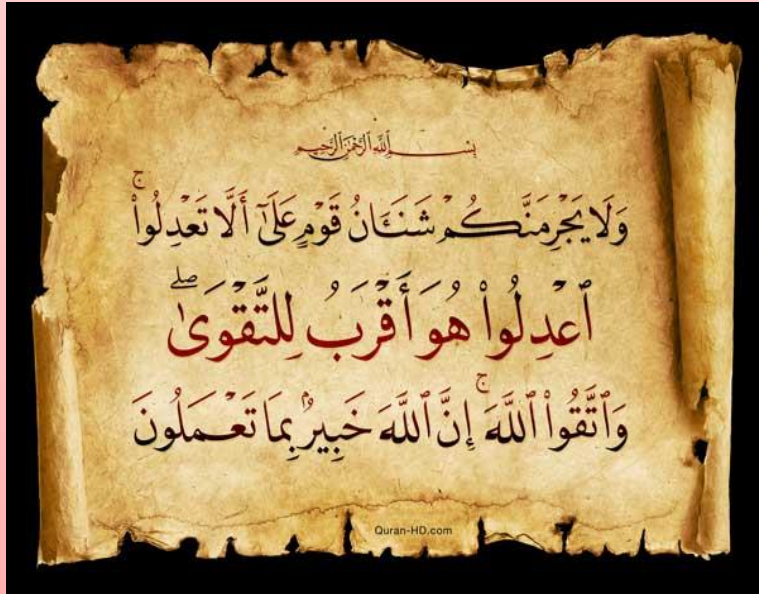 بِسْمِ ٱللَّهِ ٱلرَّحْمَٰنِ ٱلرَّحِيمِ
وَلَا يَجْرِمَنَّكُمْ شَنَـَٔانُ قَوْمٍ عَلَىٰٓ أَلَّا تَعْدِلُوا۟ ۚ
ٱعْدِلُوا۟ هُوَ أَقْرَبُ لِلتَّقْوَىٰ ۖ
وَٱتَّقُوا۟ ٱللَّهَ ۚ إِنَّ ٱللَّهَ خَبِيرٌۢ بِمَا تَعْمَلُونَ
Quran-HD.com